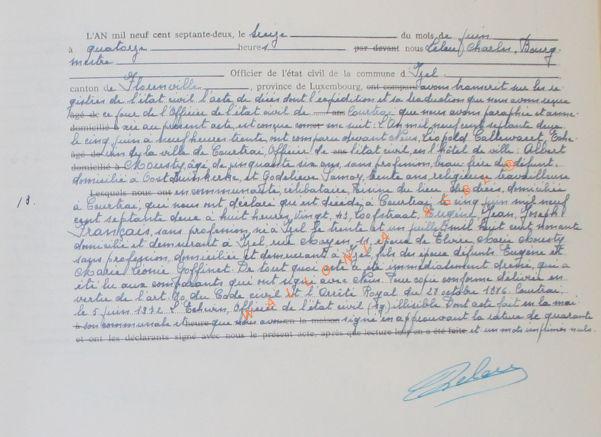 L'AN mil neuf cent septante-deux, le seize du mois de juin
à quatorze heures par devant nous Leleu Charles, Bourg-
mestre
Officier de l'état civil de la commune d'Izel
canton de Florenville, province de Luxembourg, ont comparu avons transcrit sur les re-
gistres de l'état civil l'acte de décès dont l'expédition et sa traduction que nous avons reçue
âgé de ce jour de l'Officier de l'état civil de Courtrai que nous avons paraphée et anne-
domicilié à xée au présent acte, est conçue comme suit: L'an mil neuf cent septante deux
le cinq juin à neuf heures trente, ont comparu devant Nous, Léopold Callewaert Eche-
âgé de vin de la ville de Courtrai, Officier de l'état civil, en l'Hôtel de ville: Albert
domicilié à Mousty, âgé de cinquante six ans, sans profession, beau frère du défunt,
domicilié à Oostduinkerke et Godelieve Lannoy, trente ans, religieuse travailleuse
Lesquels nous ont en communauté, célibataire, voisine du lieu du décès, domiciliée
à Courtrai, qui nous ont déclaré qu'est décédé à Courtrai le cinq juin mil neuf
13.
cent septante deux à huit heures vingt, 43, Loofstraat, Eugène, Jean, Joseph
Français, sans profession, né à Izel le trente et un juillet mil huit cent nonante
domicilié et demeurant à Izel, rue Moyen, 11, époux de Elvire, Marie Mousty
sans profession, domiciliée et demeurant à Izel, fils des époux défunts Eugène et
Marie Léonie Goffinet. De tout quoi acte a été immédiatement dressé, qui a
été lu aux comparants qui ont signé avec Nous. Pour copie conforme délivrée en
vertu de l'art. 80 du Code civil et l'Arrêté Royal du 28 octobre 1986. Courtrai
le 5 juin 1972. L'Echevin, Officier de l'état civil (sg) illisible Dont acte fait en la mai
à son communale et heure que nous avons en la maison signé en approuvant la rature de quarante
et ont les déclarants signé avec nous le présent acte, après que lecture leur en a été faite et un mots imprimés nuls.